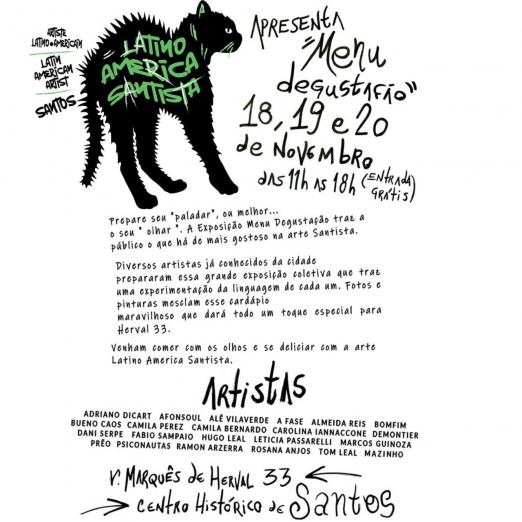 ARTISTE
LATINO-AMERICAIN
LATIN
AMERICAN
ARTIST
SANTOS
LATINO
AMERICA
SANTISTA
APRESENTA
"MENU
degustação"
18, 19 e 20
de NOVEMBRO
DAS 11h AS 18h (ENTRADA
GRÁTIS)
Prepare seu "paladar", ou melhor...
o seu " olhar ". A Exposição Menu Degustação traz a
público o que há de mais gostoso na arte Santista.
Diversos artistas já conhecidos da cidade
prepararam essa grande exposição coletiva que traz
uma experimentação da linguagem de cada um. Fotos e
pinturas mesclam esse cardápio
maravilhoso que dará todo um toque especial para
Herval 33.
Venham comer com os olhos e se deliciar com a arte
Latino America Santista.
ARTISTAS
ADRIANO DICART AFONSOUL ALÊ VILAVERDE A FASE ALMEIDA REIS BOMFIM
BUENO CAOS CAMILA PEREZ CAMILA BERNARDO CAROLINA IANNACCONE DEMONTIER
DANI SERPE FABIO SAMPAIO HUGO LEAL LETICIA PASSARELLI MARCOS GUINOZA
PRÊO PSICONAUTAS RAMON ARZERRA ROSANA ANJOS TOM LEAL MAZINHO
V. MARQUÊS DE HERVAL 33
CENTRO HISTÓRICO DE SANTOS